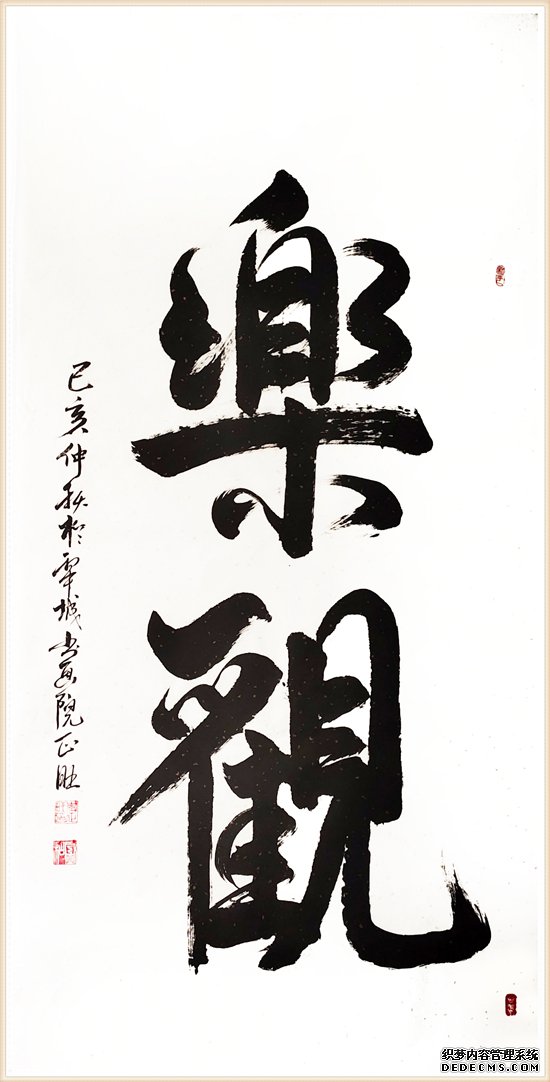 樂觀
己亥仲秋於覃城書畫院正旺
织梦内容管理系统
DEDECMS.COM